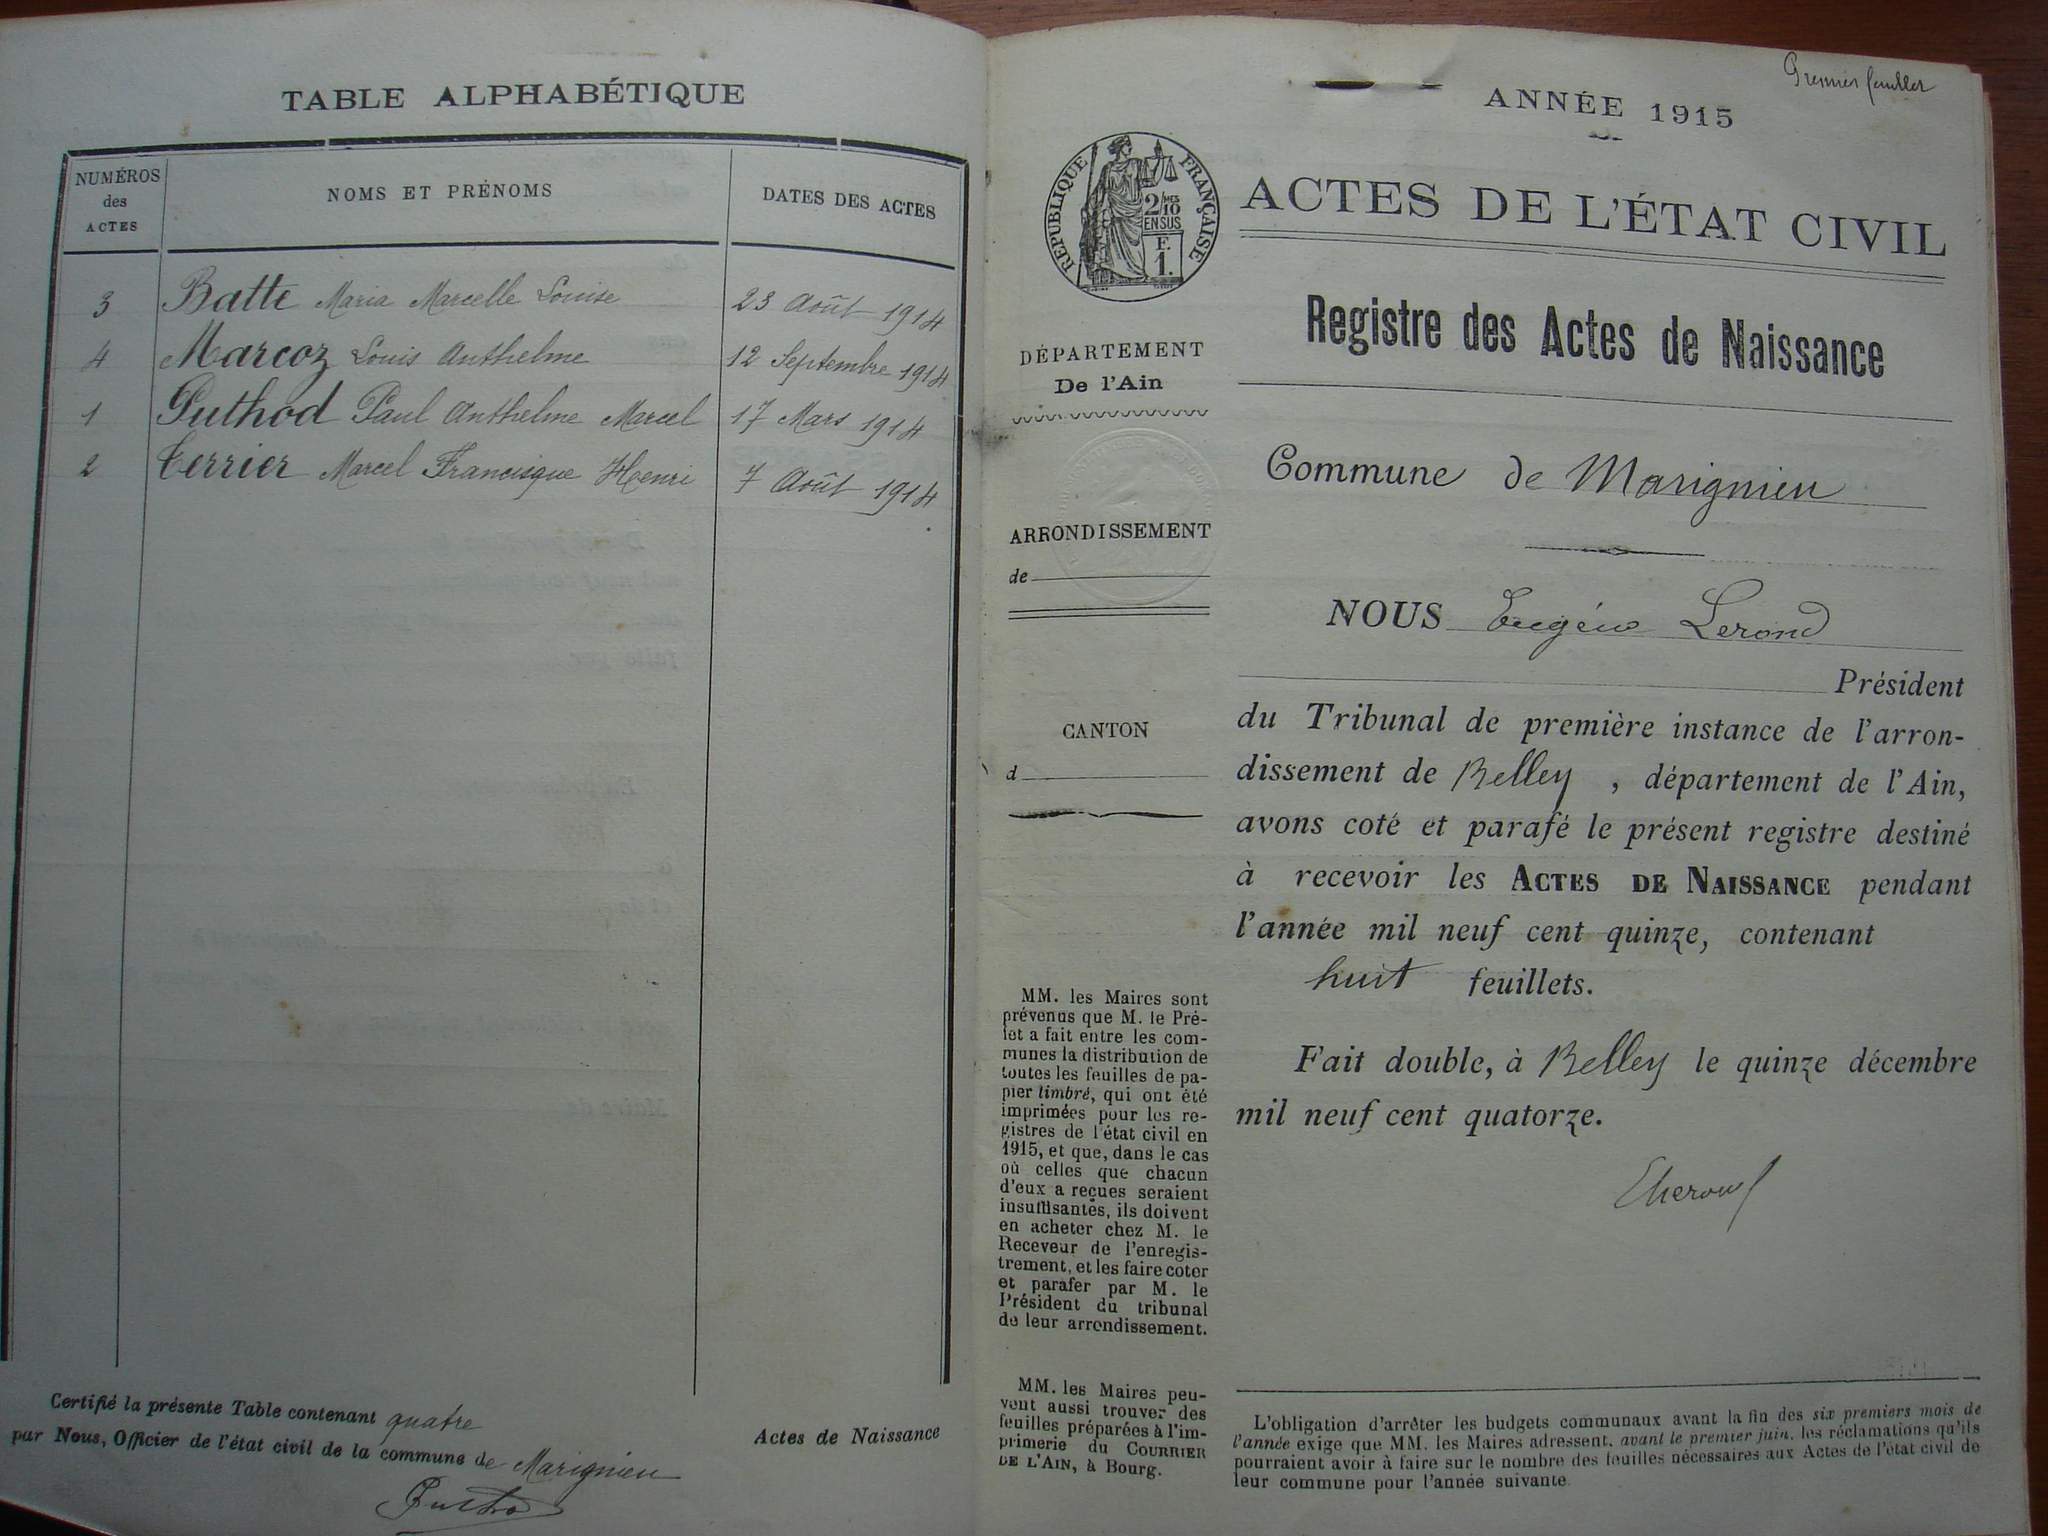 TABLE ALPHABÉTIQUE
NUMÉROS
des
ACTES
NOMS ET PRÉNOMS
DATES DES ACTES
3 Batte Maria Marcelle Louise 23 Août 1914
4 Marcoz Louis Anthelme 12 Septembre 1914
1 Puthod Paul Anthelme Marcel 17 Mars 1914
2 Terrier Marcel Francisque Henri 7 Août 1914
Certifié la présente Table contenant quatre
Actes de Naissance
par Nous, Officier de l'état civil de la commune de Marignieu
Premier feuillet
ANNÉE 1915
RÉPUBLIQUE FRANÇAISE
2/MES
10
EN SUS
F.
1.
ACTES DE L'ÉTAT CIVIL
Registre des Actes de Naissance
DÉPARTEMENT
De l'Ain
ARRONDISSEMENT
de
CANTON
d
MM. les Maires sont
prévenus que M. le Pré-
fet a fait entre les com-
munes la distribution de
toutes les feuilles de pa-
pier timbré, qui ont été
imprimées pour les re-
gistres de l'état civil en
1915, et que, dans le cas
où celles que chacun
d'eux a reçues seraient
insuffisantes, ils doivent
en acheter chez M. le
Receveur de l'enregis-
trement, et les faire coter
et parafer par M. le
Président du tribunal
de leur arrondissement.
MM. les Maires peu-
vent aussi trouver des
feuilles préparées à l'im-
primerie du COURRIER
DE L'AIN, à Bourg.
Commune de Marignieu
NOUS Eugène Lerond
Président
du Tribunal de première instance de l'arron-
dissement de Belley, département de l'Ain,
avons coté et parafé le présent registre destiné
à recevoir les ACTES DE NAISSANCE pendant
l'année mil neuf cent quinze, contenant
huit feuillets.
Fait double, à Belley le quinze décembre
mil neuf cent quatorze.
L'obligation d'arrêter les budgets communaux avant la fin des six premiers mois de
l'année exige que MM. les Maires adressent, avant le premier juin, les réclamations qu'ils
pourraient avoir à faire sur le nombre des feuilles nécessaires aux Actes de l'état civil de
leur commune pour l'année suivante.